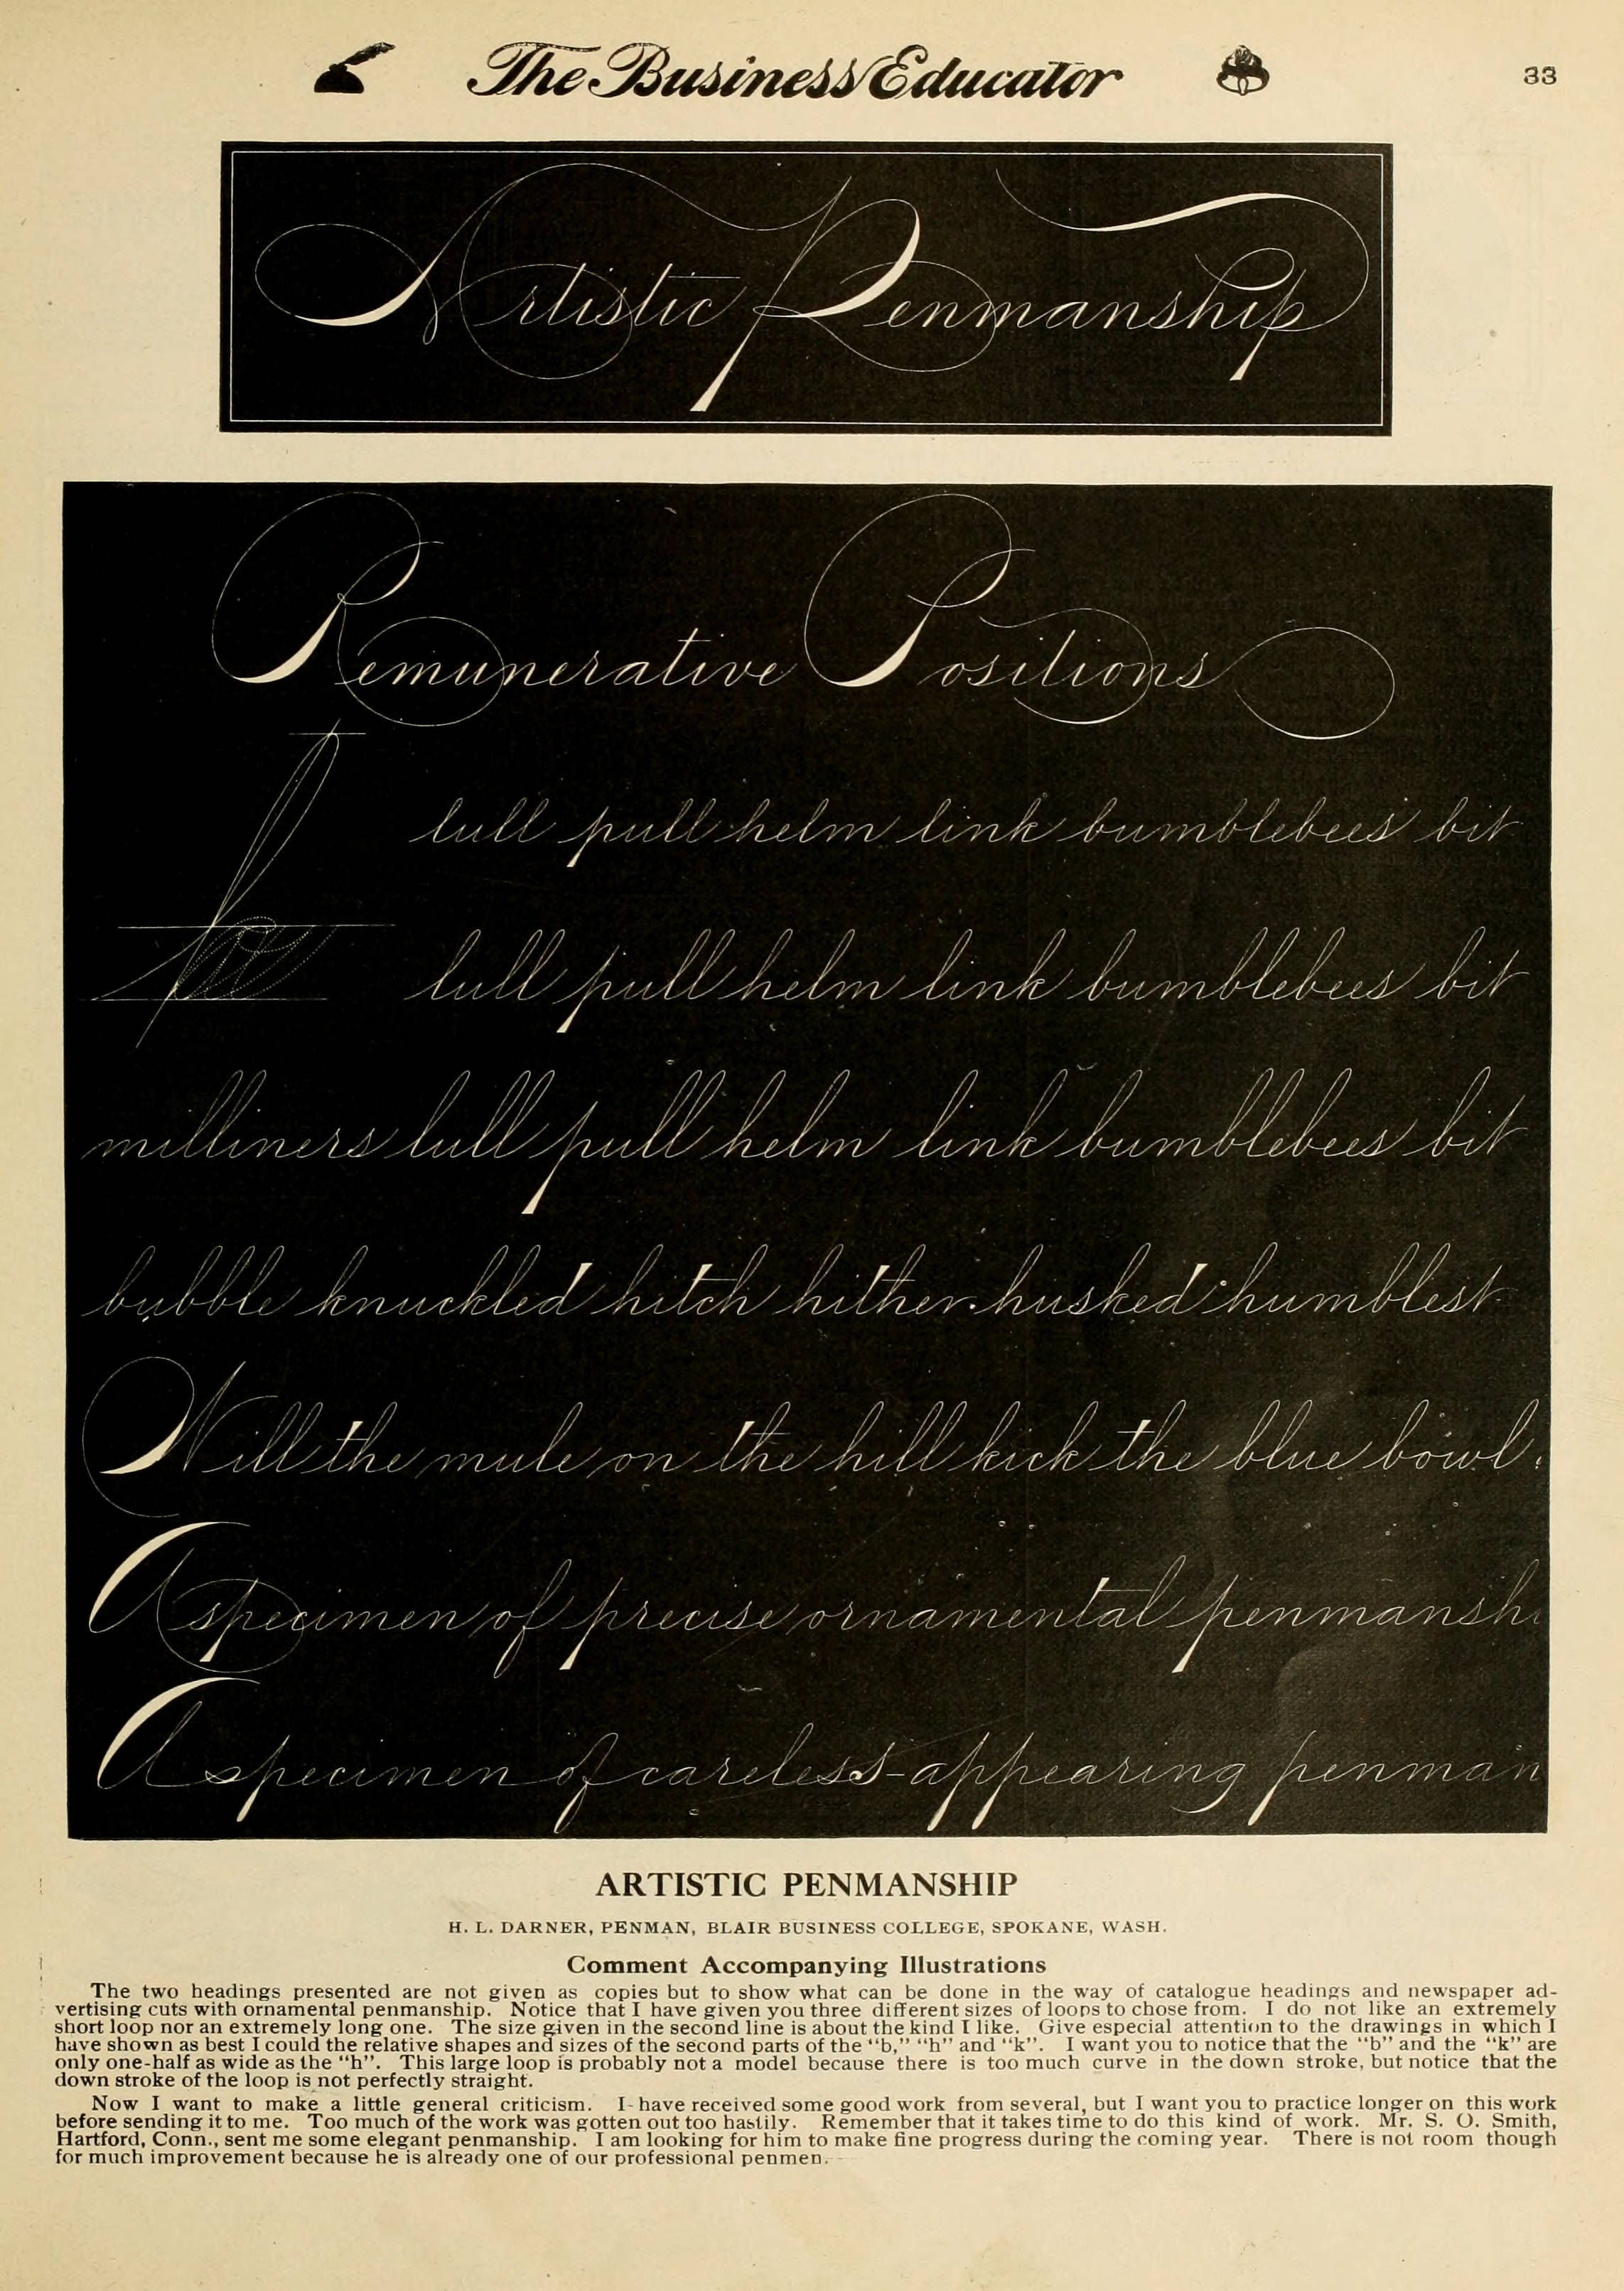 The Business Educator
33
Artistic Penmanship
Remunerative Positions
lull pull helm link bumblebees bit
lull pull helm link bumblebees bit
milliners lull pull helm link bumblebees bit
bubble knuckled hitch hither husked humblest
Will the mule on the hill kick the blue bowl.
A specimen of precise ornamental penmanshi
A specimen of careless-appearing penman
ARTISTIC PENMANSHIP
H. L. DARNER, PENMAN, BLAIR BUSINESS COLLEGE, SPOKANE, WASH.
Comment Accompanying Illustrations
The two headings presented are not given as copies but to show what can be done in the way of catalogue headings and newspaper ad-
vertising cuts with ornamental penmanship. Notice that I have given you three different sizes of loops to chose from. I do not like an extremely
short loop nor an extremely long one. The size given in the second line is about the kind I like. Give especial attention to the drawings in which I
have shown as best I could the relative shapes and sizes of the second parts of the "b," "h" and "k". I want you to notice that the "b" and the "k" are
only one-half as wide as the "h". This large loop is probably not a model because there is too much curve in the down stroke, but notice that the
down stroke of the loop is not perfectly straight.
Now I want to make a little general criticism. I have received some good work from several, but I want you to practice longer on this work
before sending it to me. Too much of the work was gotten out too hastily. Remember that it takes time to do this kind of work. Mr. S. O. Smith,
Hartford, Conn., sent me some elegant penmanship. I am looking for him to make fine progress during the coming year. There is not room though
for much improvement because he is already one of our professional penmen.